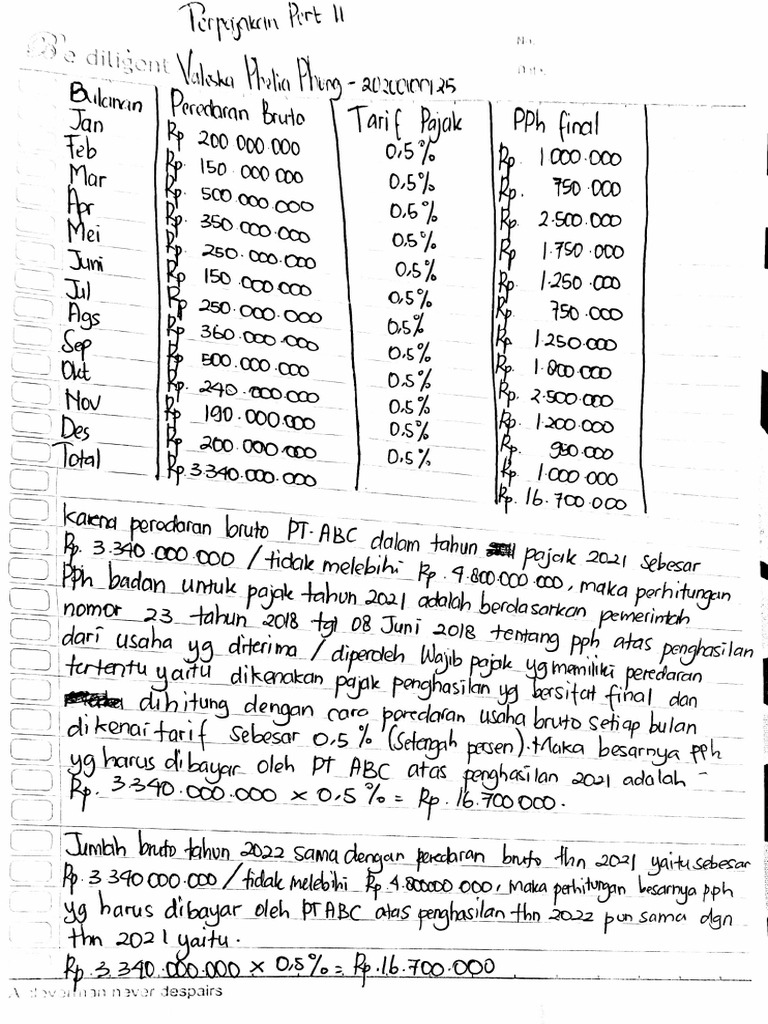 Perpajakan Pert 11
No.
Date.
Be diligent Valeska Phelia Phung - 20200100125
Bulanan Peredaran Bruto Tarif Pajak PPh final
Jan Rp 200 000.000 0,5% Rp. 1 000.000
Feb Rp. 150 000 000 0,5% Rp. 750 000
Mar Rp. 500.000.000 0,5% Rp. 2.500.000
Apr Rp. 350.000.000 0,5% Rp 1.750.000
Mei Rp. 250.000.000 0,5% Rp. 1.250.000
Juni Rp. 150.000.000 0,5% Rp. 750.000
Jul Rp 250.000.000 0,5% Rp. 1.250.000
Ags Rp 360.000.000 0,5% Rp. 1.800.000
Sep Rp 500.000.000 0,5% Rp. 2.500.000
Okt Rp. 240.000.000 0,5% Rp. 1.200.000
Nov Rp 190.000.000 0,5% Rp. 950.000
Des Rp 200.000.000 0,5% Rp 1.000.000
Total Rp 3.340.000.000 Rp. 16.700.000
Karena peredaran bruto PT. ABC dalam tahun pajak 2021 sebesar
Rp. 3.340.000.000 / tidak melebihi Rp. 4.800.000.000, maka perhitungan
PPh badan untuk pajak tahun 2021 adalah berdasarkan pemerintah
nomor 23 tahun 2018 tgl 08 Juni 2018 tentang pph atas penghasilan
dari usaha yg diterima / diperoleh Wajib pajak yg memiliki peredaran
tertentu yaitu dikenakan pajak penghasilan yg bersifat final dan
dihitung dengan cara peredaran usaha bruto setiap bulan
dikenai tarif sebesar 0,5% (Setengah persen). Maka besarnya pph
yg harus dibayar oleh PT ABC atas penghasilan 2021 adalah -
Rp. 3.340.000.000 x 0,5% = Rp. 16.700 000.
Jumlah bruto tahun 2022 sama dengan peredaran bruto thn 2021 yaitu sebesar
Rp. 3 340 000.000 / tidak melebihi Rp 4.800000 000, maka perhitungan besarnya pph
yg harus dibayar oleh PT ABC atas penghasilan thn 2022 pun sama dgn
thn 2021 yaitu.
Rp. 3.340.000.000 x 0,5% = Rp. 16.700.000
A clever man never despairs